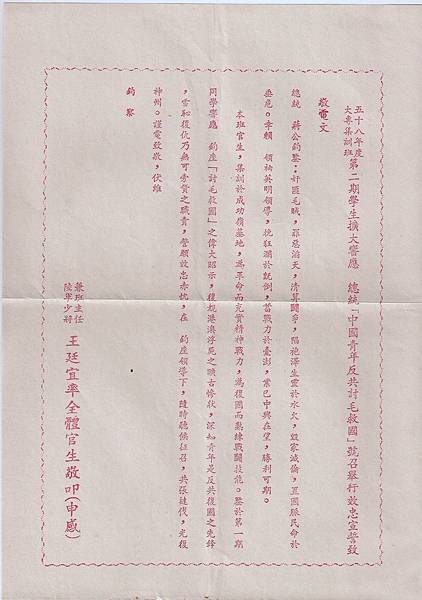 五十八年度大專集訓班第二期學生擴大響應　總統「中國青年反共討毛救國」號召舉行效忠宣誓致
敬電文
總統　蔣公鈞鑒：奸匪毛賊，罪惡滔天，清算鬪爭，陷袍澤生靈於水火，毀家滅倫，至國脈民命於
垂危。幸賴　領袖英明領導，挽狂瀾於既倒，蓄戰力於臺澎，業已中興在望，勝利可期。
本班官生，集訓於成功嶺基地，為革命而充實精神戰力，為復國而勤練戰鬪技能。鑒於第一期
同學響應　鈞座「討毛救國」之偉大昭示，復觀港澳浮死之曠古慘狀，深知青年是反共復國之先鋒
，雪恥復仇乃無可旁貸之職責，誓願效忠赤忱，在　鈞座領導下，隨時聽候征召，共張撻伐，光復
神州。謹電致敬，伏維
鈞察
兼班主任
陸軍少將　王廷宜率全體官生敬叩（申感）